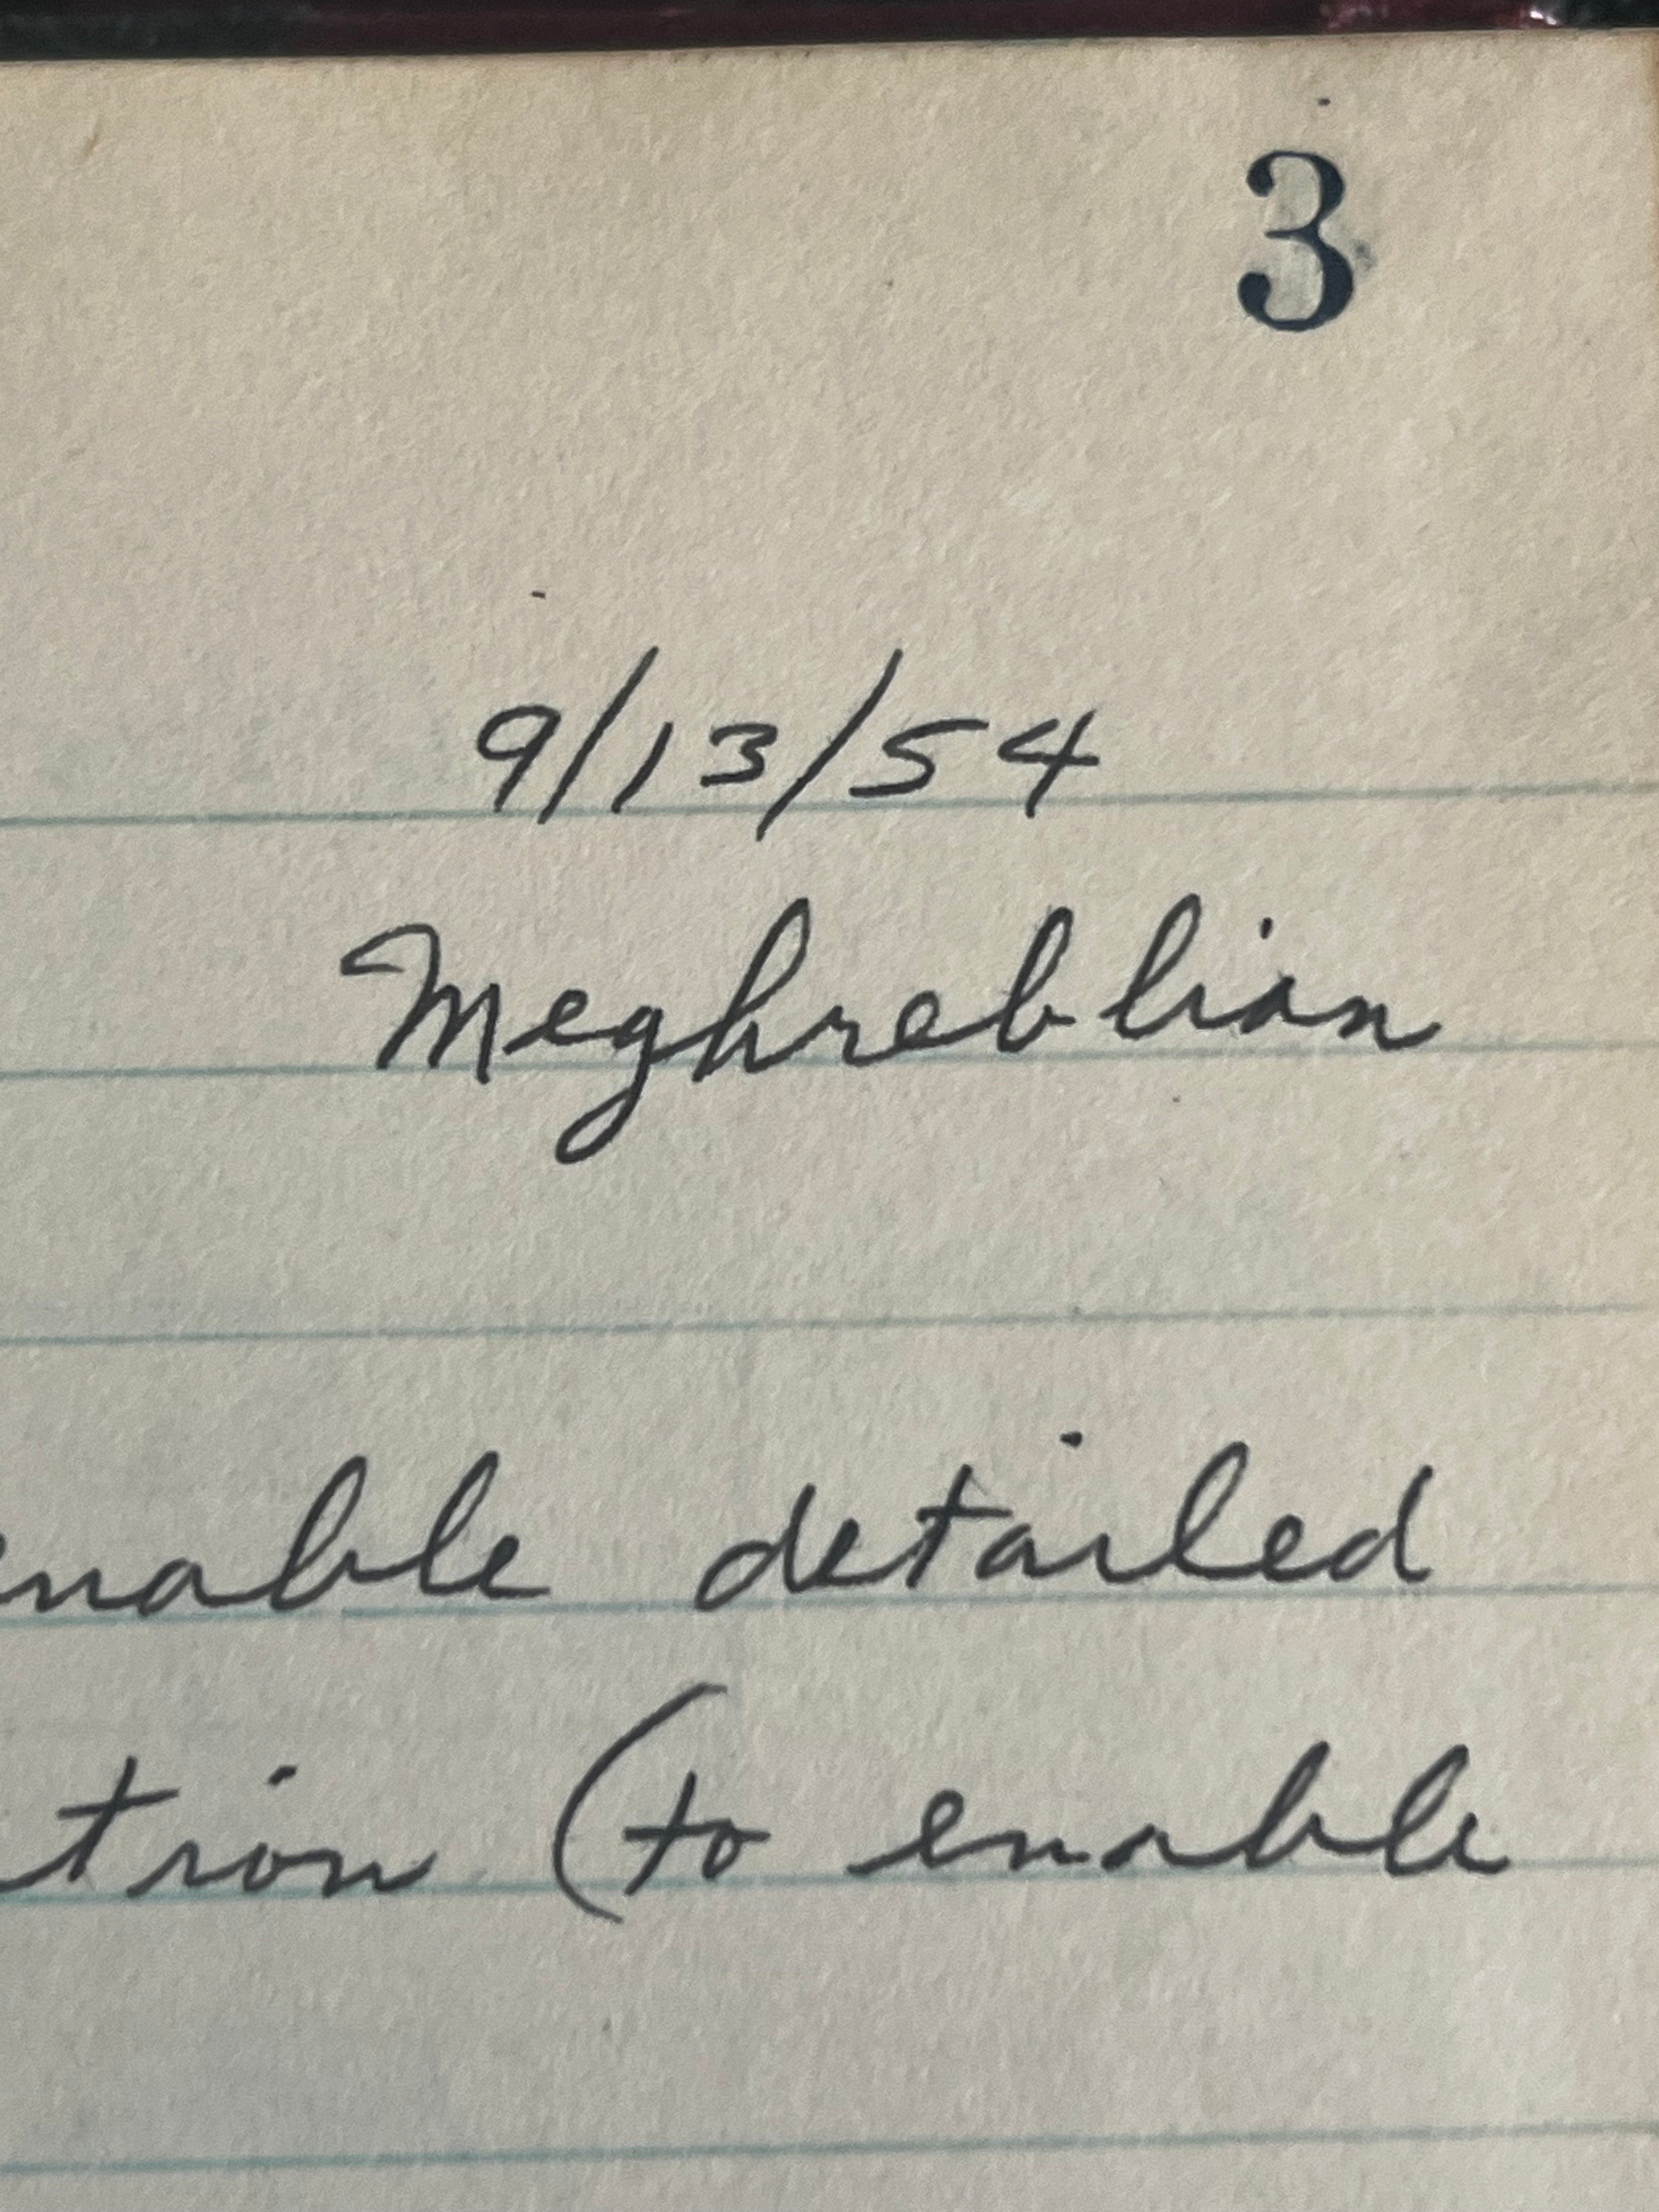 3
9/13/54
Meghreblian
enable detailed
tion (to enable